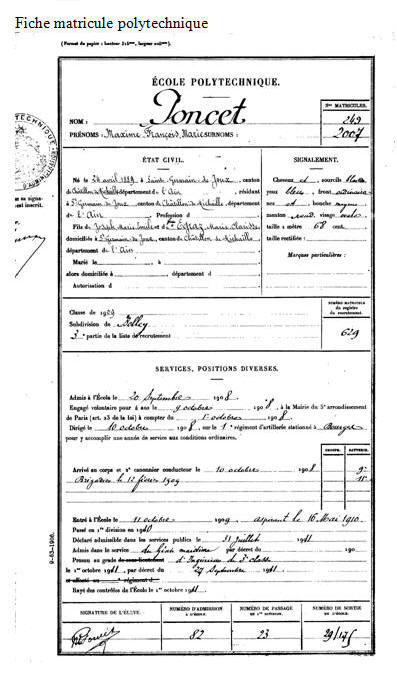 Fiche matricule polytechnique
(Format du papier : hauteur 315mm, largeur 208mm).
ÉCOLE POLYTECHNIQUE.
Nos MATRICULES.
NOM : Poncet
249
PRÉNOMS : Maxime François Marie SURNOMS :
2007
ÉTAT CIVIL.
Né le 26 avril 1889, à Saint Germain de Joux, canton
de Châtillon de Michaille département de l'Ain, résidant
à St Germain de Joux, canton de Châtillon de Michaille, département
de l'Ain Profession d
Fils de Joseph Marie Émile et d Marie Claudine
domiciliés à St Germain de Joux, canton de Châtillon de Michaille
département de l'Ain.
Marié le à
alors domiciliée à , département d
Autorisation d
SIGNALEMENT.
Cheveux et sourcils
yeux bleus, front ordinaire
nez et, bouche moyenne
menton rond, visage ovale
taille 1 mètre 68 cent.
taille rectifiée :
Marques particulières :
Classe de 1909
Subdivision de Belley
3e partie de la liste de recrutement
NUMÉRO MATRICULE
du registre
du recrutement.
629
SERVICES, POSITIONS DIVERSES.
Admis à l'École le 20 Septembre 1908.
Engagé volontaire pour 4 ans le 9 octobre 1908, à la Mairie du 5e arrondissement
de Paris (art. 23 de la loi) à compter du 1er octobre 1908.
Dirigé le 10 octobre 1908, sur le 1er régiment d'artillerie stationné à Bourges
pour y accomplir une année de service aux conditions ordinaires.
GROUPE. BATTERIE.
Arrivé au corps et 2e canonnier conducteur le 10 octobre 1908
9e
Brigadier le 12 février 1909
Entré à l'École le 11 octobre 1909, aspirant le 16 Mai 1910.
Passé en 1re division en 1910
Déclaré admissible dans les services publics le 31 juillet 1911
Admis dans le service du Génie maritime par décret du 190
Promu au grade de sous-lieutenant d'Ingénieur de 3e classe
le 1er octobre 1911, par décret du 27 Septembre 1911.
et affecté au régiment d
Rayé des contrôles de l'École le 1er octobre 1911.
9-63-1908.
SIGNATURE DE L'ÉLÈVE.
NUMÉRO D'ADMISSION
à L'ÉCOLE.
NUMÉRO DE PASSAGE
EN 1re DIVISION.
NUMÉRO DE SORTIE
DE L'ÉCOLE.
Poncet
82
23
29/175